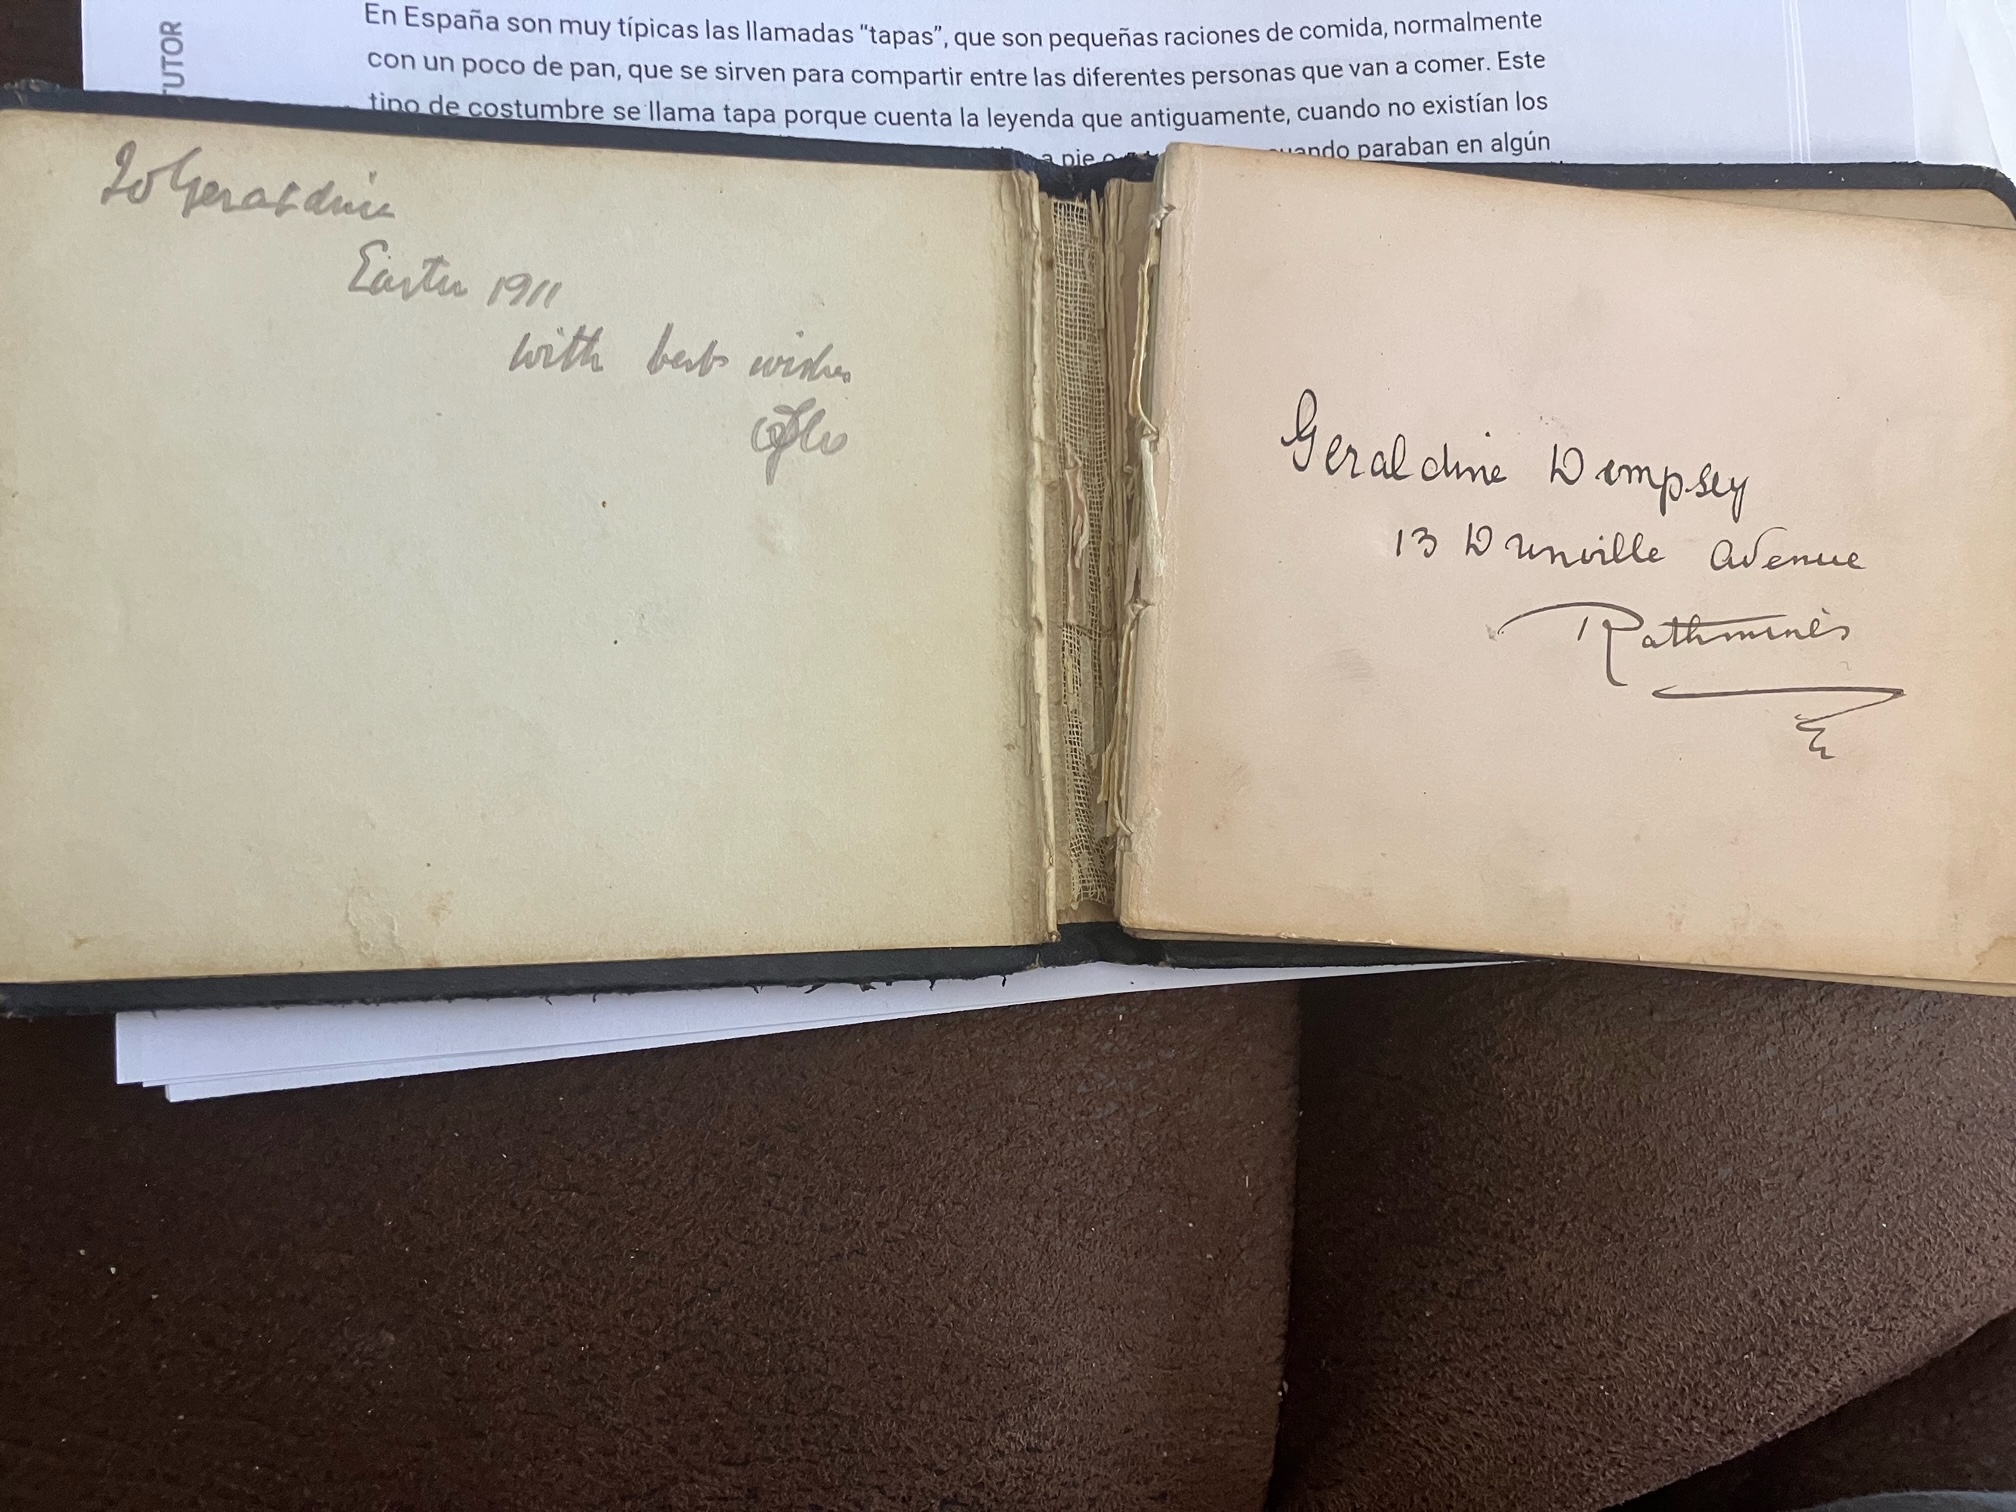 UTOR
En España son muy típicas las llamadas “tapas”, que son pequeñas raciones de comida, normalmente
con un poco de pan, que se sirven para compartir entre las diferentes personas que van a comer. Este
tipo de costumbre se llama tapa porque cuenta la leyenda que antiguamente, cuando no existían los
a pie o uando paraban en algún
To Geraldine
Easter 1911
with best wishes
Geraldine Dempsey
13 Dunville Avenue
Rathmines